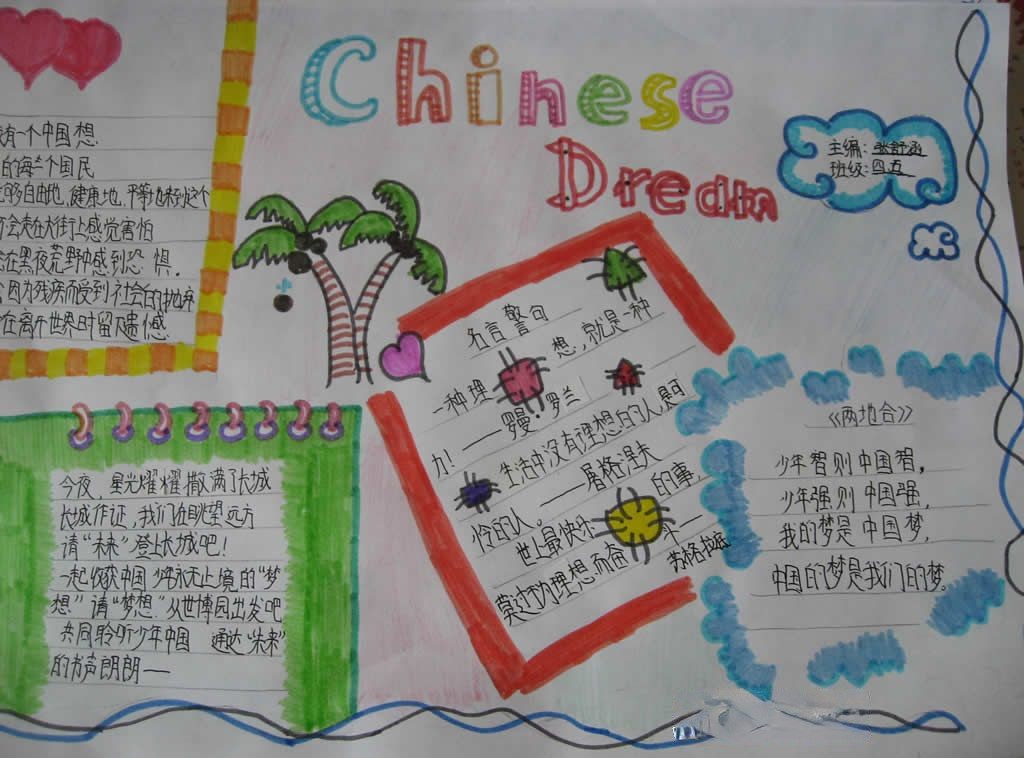 Chinese
Dream
主编：张舒涵
班级：四五
有一个中国想.
的每一个国民
够自由地，健康地，平等地
会走在大街上感觉害怕
在黑夜荒野中感到恐惧，
因为残疾而受到社会的抛弃
在离开世界时留下遗憾
名言警句
想，就是一种
一种理
力！——罗曼·罗兰
生活中没有理想的人，是可
怜的人。——屠格涅夫
世上最快乐 的事，
莫过于为理想而奋 斗——
苏格拉底
《两地合》
少年智则中国智，
少年强则中国强，
我的梦是中国梦，
中国的梦是我们的梦。
今夜，星光耀耀撒满了长城
长城作证，我们在眺望远方
请“未来”登上长城吧！
一起收获中国 永无止境的“梦
想”请“梦想”从世博园出发吧
共同聆听少年中国 通达“未来”
的方声朗朗—